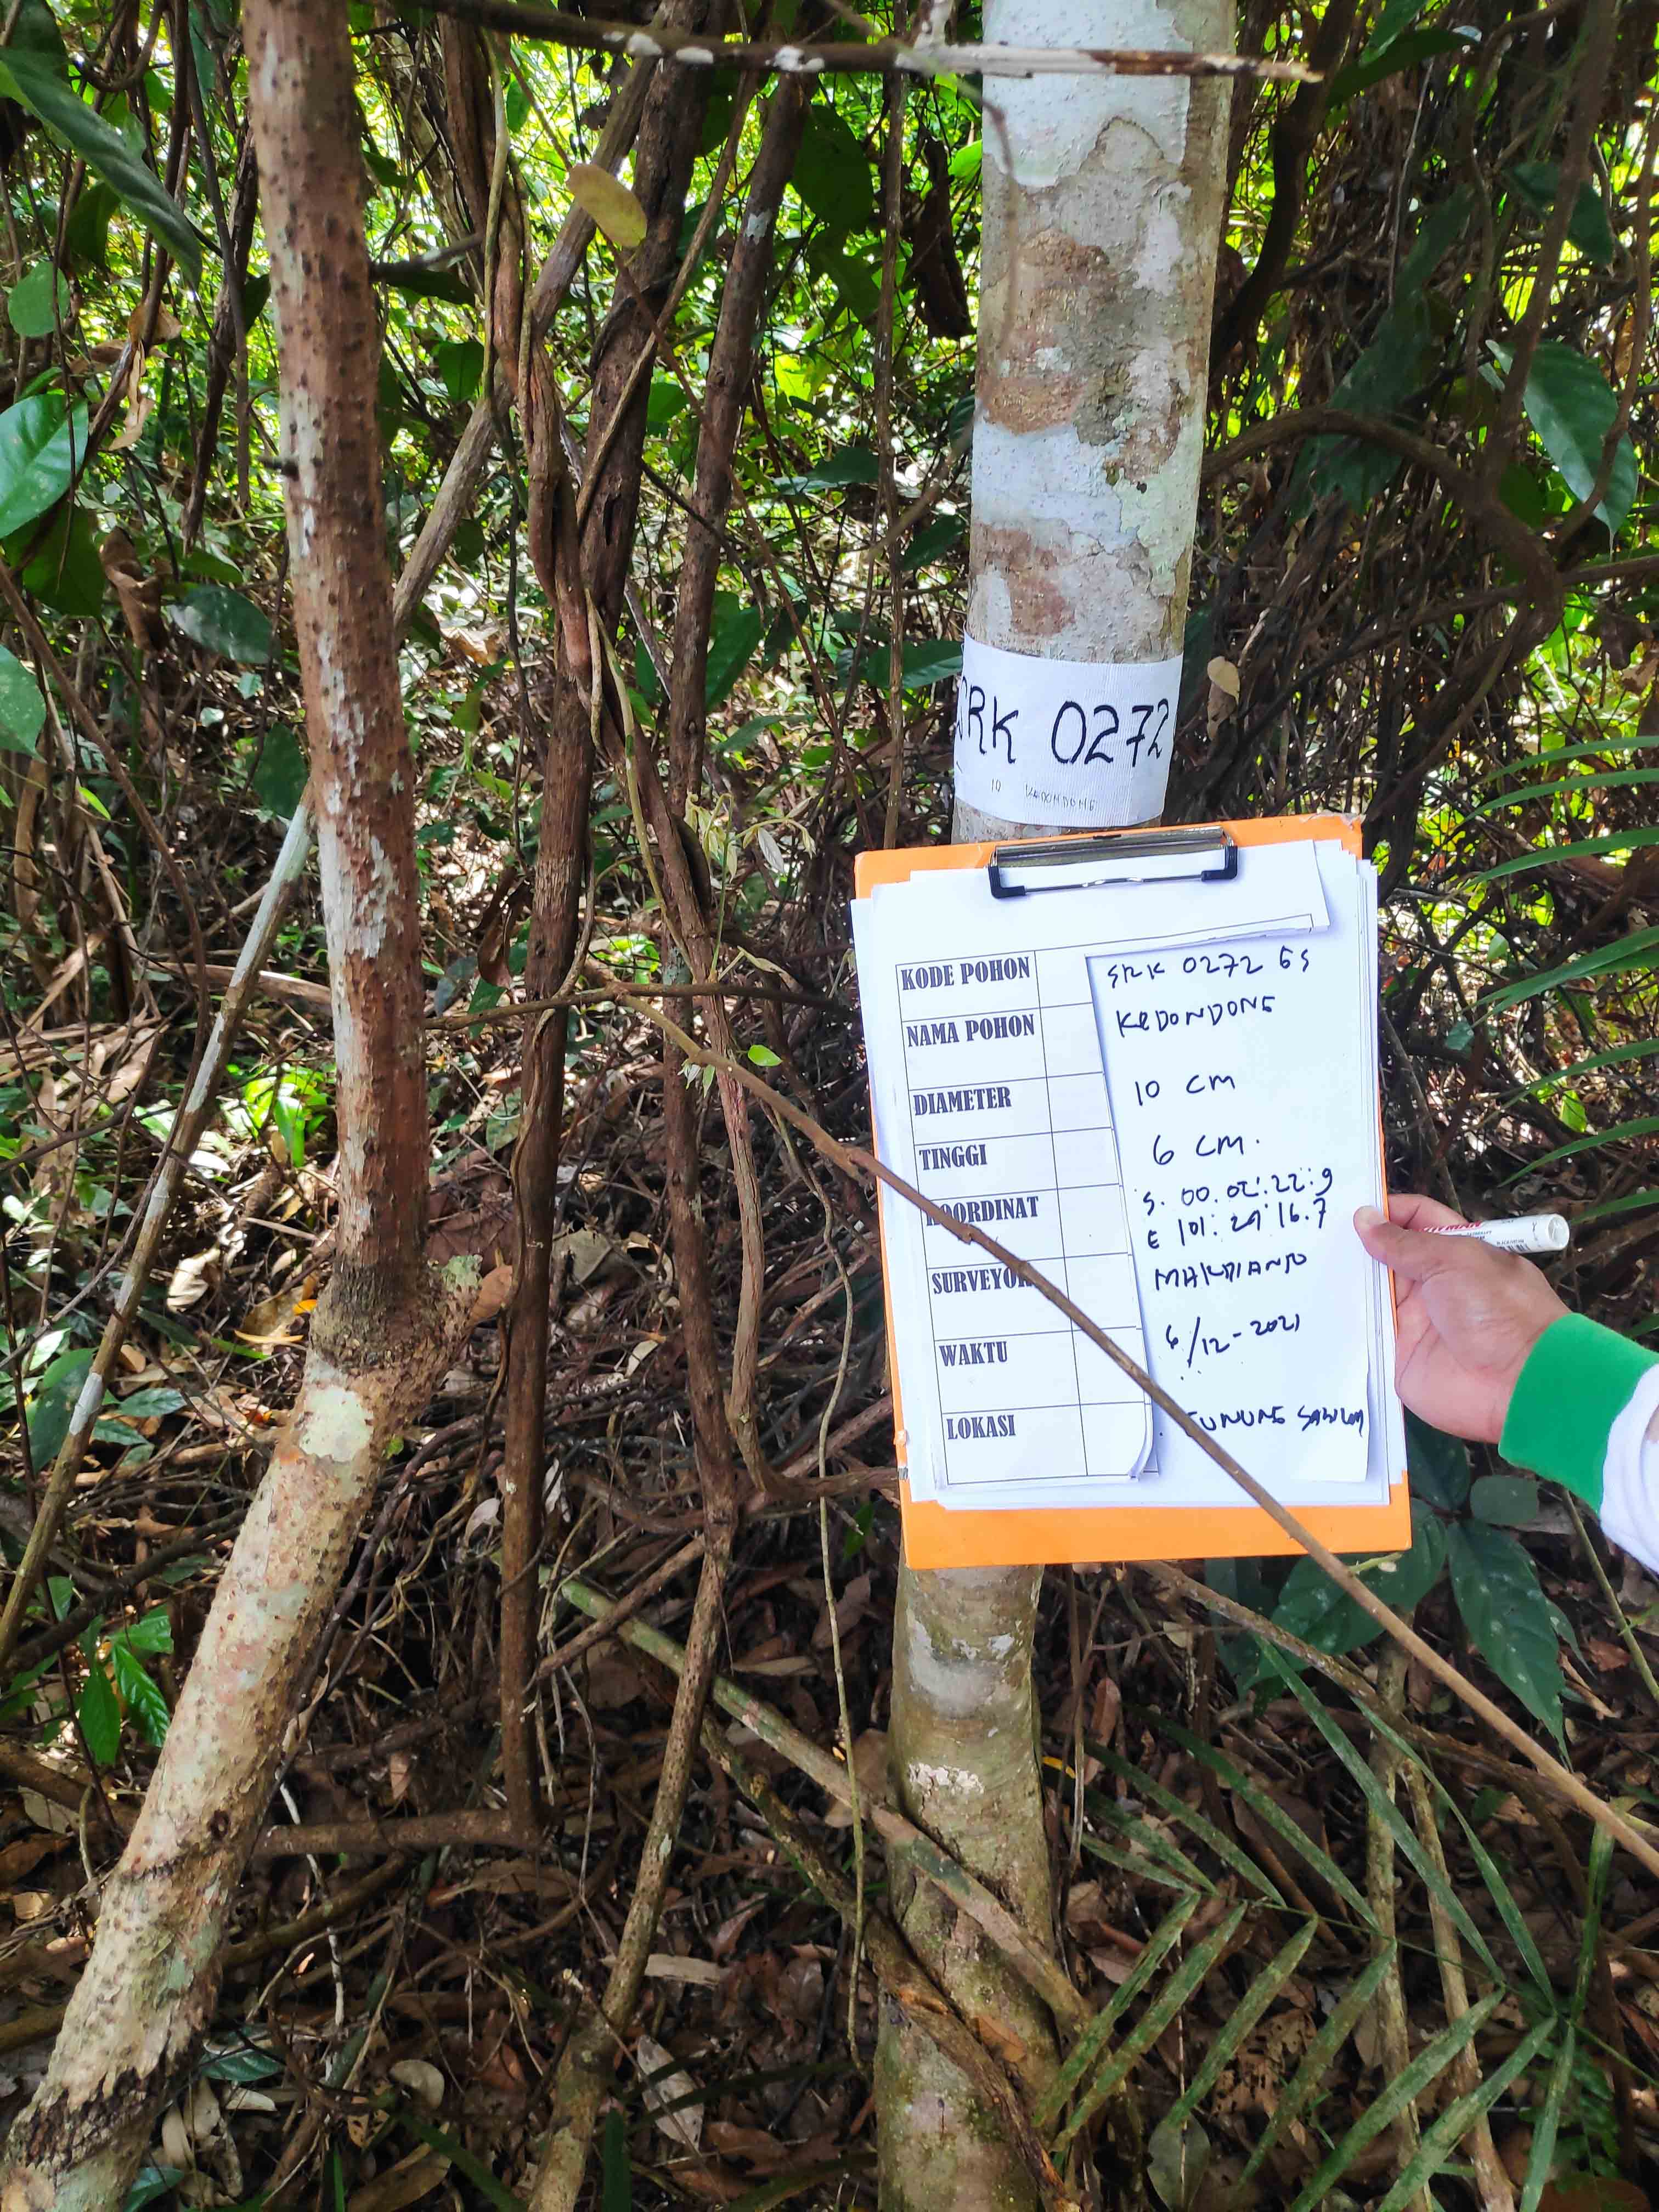 RK 0272
10 KEDONDONG
KODE POHON SRK 0272 GS
NAMA POHON KEDONDONG
DIAMETER 10 CM
TINGGI 6 CM.
KOORDINAT S. 00. 02'. 22". 9
E 101: 29' 16.7
SURVEYOR
WAKTU 6/12-2021
LOKASI GUNUNG